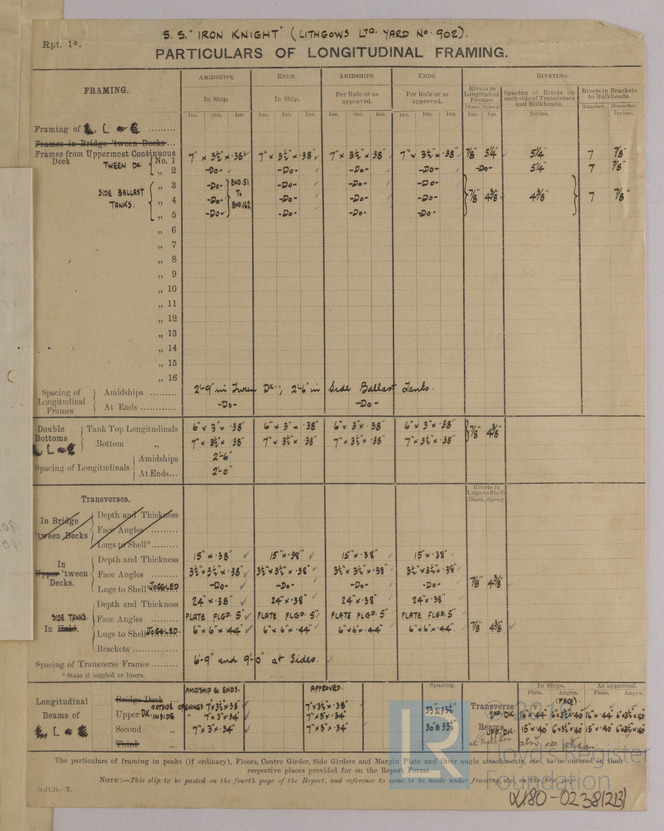 S.S. "IRON KNIGHT" (LITHGOWS LTD. YARD NO. 902).
Rpt. 1*.
PARTICULARS OF LONGITUDINAL FRAMING.
FRAMING. AMIDSHIPS. ENDS. AMIDSHIPS. ENDS. RIVETING.
In Ship. In Ship. Per Rule or as approved. Per Rule or as approved. Rivets in Longitudinal Frames Spacing of Rivets on each side of Transverses and Bulkheads. Rivets in Brackets to Bulkheads.
Ins. Ins. Ins. Ins. Ins. Ins. Ins. Ins. Ins. Ins. Ins. Ins. Diam. Speng. Number. Diameter.
Ins. Ins. Inches. Inches.
Framing of
Frames in Bridge 'tween Decks
Frames from Uppermost Continuous Deck No. 1 7" x 3½" x .38" 7" x 3½" x .38" 7" x 3½" x .38" 7" x 3½" x .38" 7/8 5¼" 5¼" 7 7/8"
TWEEN DK. „ 2 -Do- -Do- -Do- -Do- -Do- 5¼" 7 7/8"
„ 3 -Do- BHD.51 -Do- -Do- -Do-
SIDE BALLAST TANKS. „ 4 -Do- TO -Do- -Do- -Do- 7/8 4⅜ 4⅜" 7 7/8"
„ 5 -Do- BHD.162 -Do- -Do- -Do-
„ 6
„ 7
„ 8
„ 9
„ 10
„ 11
„ 12
„ 13
„ 14
„ 15
„ 16
Spacing of Longitudinal Frames Amidships 2'-9" in Tween Dk.; 2'-6" in Side Ballast Tanks.
At Ends -Do- -Do-
Double Bottoms Tank Top Longitudinals 6" x 3" x .38" 6" x 3" x .38" 6" x 3" x .38" 6" x 3" x .38" 7/8 4⅜
Bottom „ 7" x 3½" x .38" 7" x 3½" x .38" 7" x 3½" x .38" 7" x 3½" x .38"
Spacing of Longitudinals Amidships 2'-6"
At Ends... 2'-0"
Transverses. Rivets in Lugs to Shell
Diam. Speng.
In Bridge 'tween Decks Depth and Thickness
Face Angles
Lugs to Shell*
In Upper 'tween Decks. Depth and Thickness 15" x .38" 15" x .38" 15" x .38" 15" x .38"
Face Angles 3½" x 3½" x .38" 3½" x 3½" x .38" 3½" x 3½" x .38" 3½" x 3½" x .38"
Lugs to Shell* JOGGLED -Do- -Do- -Do- -Do- 7/8 4⅜
Depth and Thickness 24" x .38" 24" x .38" 24" x .38" 24" x .38"
SIDE TANKS Face Angles PLATE FLGD. 5" PLATE FLGD. 5" PLATE FLGD. 5" PLATE FLGD. 5"
In Hold. Lugs to Shell JOGGLED. 6" x 6" x .44" 6" x 6" x .44" 6" x 6" x .44" 6" x 6" x .44" 7/8 4⅜
Brackets
Spacing of Transverse Frames 6'-9" and 9'-0" at Sides.
* State if joggled or liners.
AMIDSHIP & ENDS. APPROVED. Spacing. In Ships. As approved.
Plate. Angles. Plate. Angles.
Longitudinal Beams of Bridge Deck
OUTSIDE OPENINGS 7"x3½"x.38" 7"x3½"x.38"
Upper DK. INSIDE
Second „
Third „
Transverse Beams
(FACE)
2ND. DK.
UPR. DK.
The particulars of framing in peaks (if ordinary), Floors, Centre Girder, Side Girders and Margin Plate and their angle attachments, etc. to be entered in their
respective places provided for on the Report Forms.
NOTE:—This slip to be posted on the fourth page of the Report, and reference to same to be made under framing, etc. on the first page.
LR
Lloyd's Register
Foundation
W180-0238(2B)